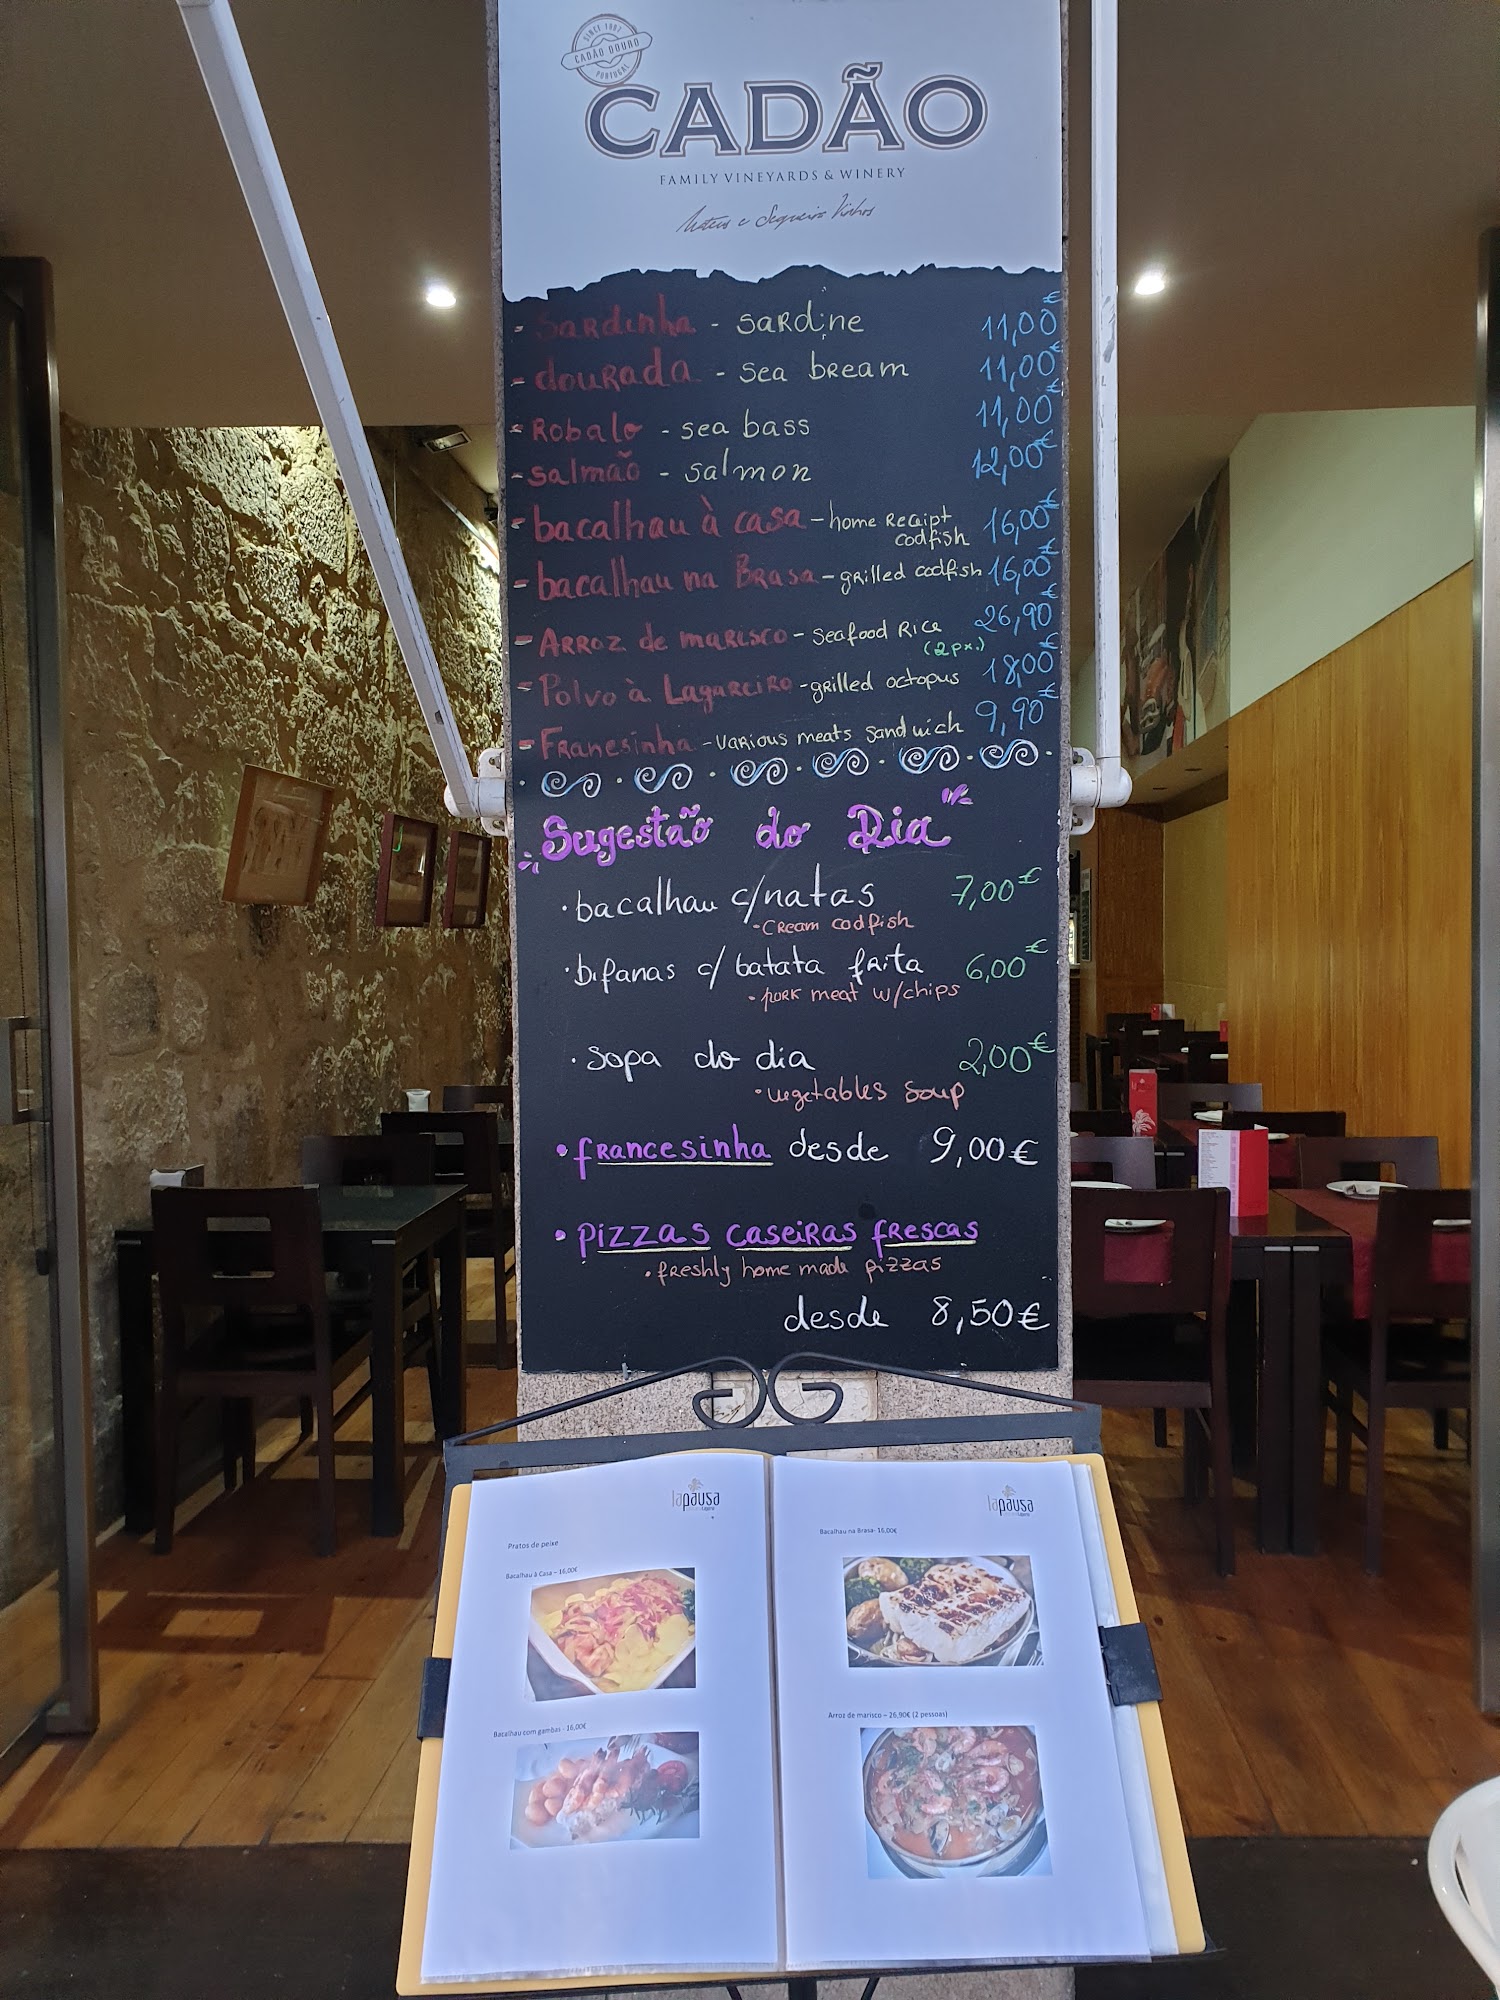 SINCE 1987
CADÃO DOURO
PORTUGAL
CADÃO
FAMILY VINEYARDS & WINERY
Mateus e Sequeira Vinhos
- Sardinha - sardine 11,00€
- dourada - sea bream 11,00€
- Robalo - sea bass 11,00€
- salmão - salmon 12,00€
- bacalhau à casa - home receipt codfish 16,00€
- bacalhau na Brasa - grilled codfish 16,00€
- Arroz de marisco - seafood Rice (2px.) 26,90€
- Polvo à Lagareiro - grilled octopus 18,00€
- Franesinha - various meats sandwich 9,90€
Sugestão do Dia
· bacalhau c/natas 7,00€
· cream codfish
· bifanas c/ batata frita 6,00€
· pork meat w/chips
· sopa do dia 2,00€
· vegetables soup
• francesinha desde 9,00€
• pizzas caseiras frescas
· freshly home made pizzas
desde 8,50€
lapausa
Pratos de peixe
Bacalhau à Casa – 16,00€
Bacalhau com gambas - 16,00€
lapausa
Bacalhau na Brasa- 16,00€
Arroz de marisco – 26,90€ (2 pessoas)